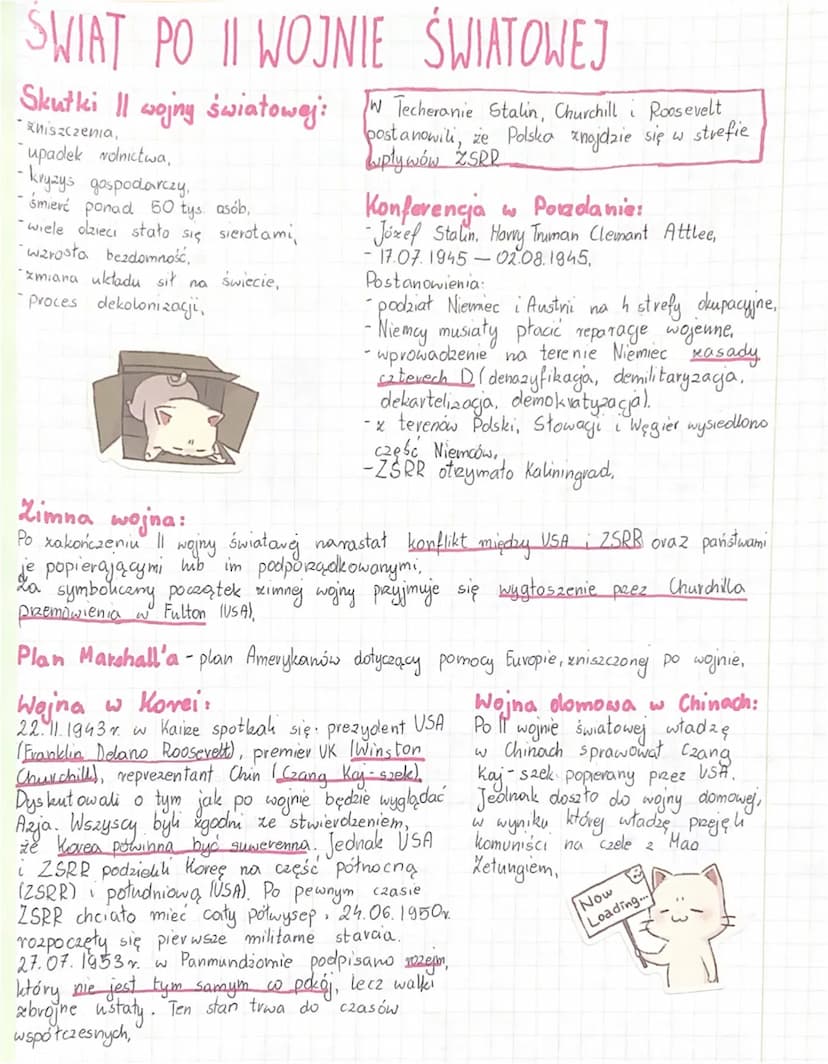 ŚWIAT PO II WOJNIE ŚWIATOWEJ
Skutki II wojny światowej:
- zniszczenia,
- upadek rolnictwa,
- kryzys gospodarczy,
- śmierć ponad 60 tys. osób,
- wiele dzieci stało się sierotami,
- wzrosła bezdomność,
- zmiana układu sił na świecie,
- proces dekolonizacji,
W Techeranie Stalin, Churchill i Roosevelt
postanowili, że Polska znajdzie się w strefie
wpływów ZSRR
Konferencja w Poczdanie:
- Józef Stalin, Harry Truman Clemant Attlee,
- 17.07.1945 – 02.08.1945,
Postanowienia:
- podział Niemiec i Austrii na 4 strefy okupacyjne,
- Niemcy musiały płacić reparacje wojenne,
- wprowadzenie na terenie Niemiec zasady
czterech D (denazyfikacja, demilitaryzacja,
dekartelizacja, demokratyzacja).
- z terenów Polski, Słowacji i Węgier wysiedlono
część Niemców,
- ZSRR otrzymało Kaliningrad,
Zimna wojna:
Po zakończeniu II wojny światowej narastał konflikt między USA i ZSRR oraz państwami
je popierającymi lub im podporządkowanymi,
Za symboliczny początek zimnej wojny przyjmuje się wygłoszenie przez Churchilla
przemówienia w Fulton (USA),
Plan Marshall'a - plan Amerykanów dotyczący pomocy Europie, zniszczonej po wojnie,
Wojna w Korei:
22.11.1943r. w Kairze spotkali się: prezydent USA
(Franklin Delano Roosevelt), premier UK (Winston
Churchill), reprezentant Chin (Czang Kaj-szek).
Dyskutowali o tym jak po wojnie będzie wyglądać
Azja. Wszyscy byli zgodni ze stwierdzeniem,
że Korea powinna być suwerenna. Jednak USA
i ZSRR podzielili Koreę na część północną
(ZSRR) i południową (USA). Po pewnym czasie
ZSRR chciało mieć cały półwysep. 24.06.1950r.
rozpoczęły się pierwsze militarne starcia.
27.07.1953r. w Panmundżomie podpisano rozejm,
który nie jest tym samym co pokój, lecz walki
zbrojne ustały. Ten stan trwa do czasów
współczesnych,
Wojna domowa w Chinach:
Po II wojnie światowej władzę
w Chinach sprawował Czang
Kaj-szek popierany przez USA.
Jednak doszło do wojny domowej,
w wyniku której władzę przejęli
komuniści na czele z Mao
Zetungiem,
Now
Loading...